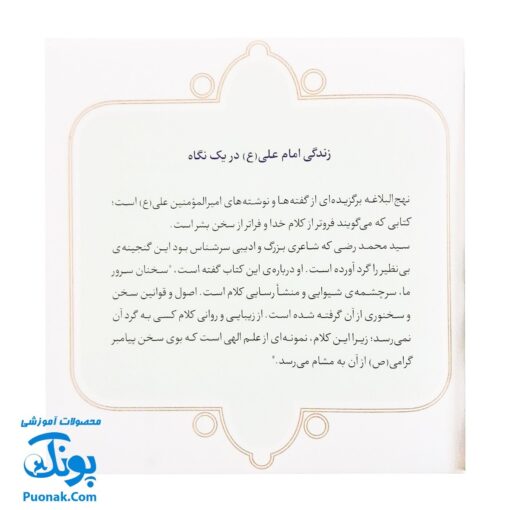 زندگی امام علی(ع) در یک نگاه
نهج‌البلاغه برگزیده‌ای از گفته‌ها و نوشته‌های امیرالمؤمنین علی(ع) است؛
کتابی که می‌گویند فروتر از کلام خدا و فراتر از سخن بشر است.
سید محمد رضی که شاعری بزرگ و ادیبی سرشناس بود این گنجینه‌ی
بی‌نظیر را گرد آورده است. او درباره‌ی این کتاب گفته است، "سخنان سرور
ما، سرچشمه‌ی شیوایی و منشأ رسایی کلام است. اصول و قوانین سخن
و سخنوری از آن گرفته شده است. از زیبایی و روانی کلام کسی به گرد آن
نمی‌رسد؛ زیرا این کلام، نمونه‌ای از علم الهی است که بوی سخن پیامبر
گرامی(ص) از آن به مشام می‌رسد."
محصولات آموزشی
پونک
Puonak.Com